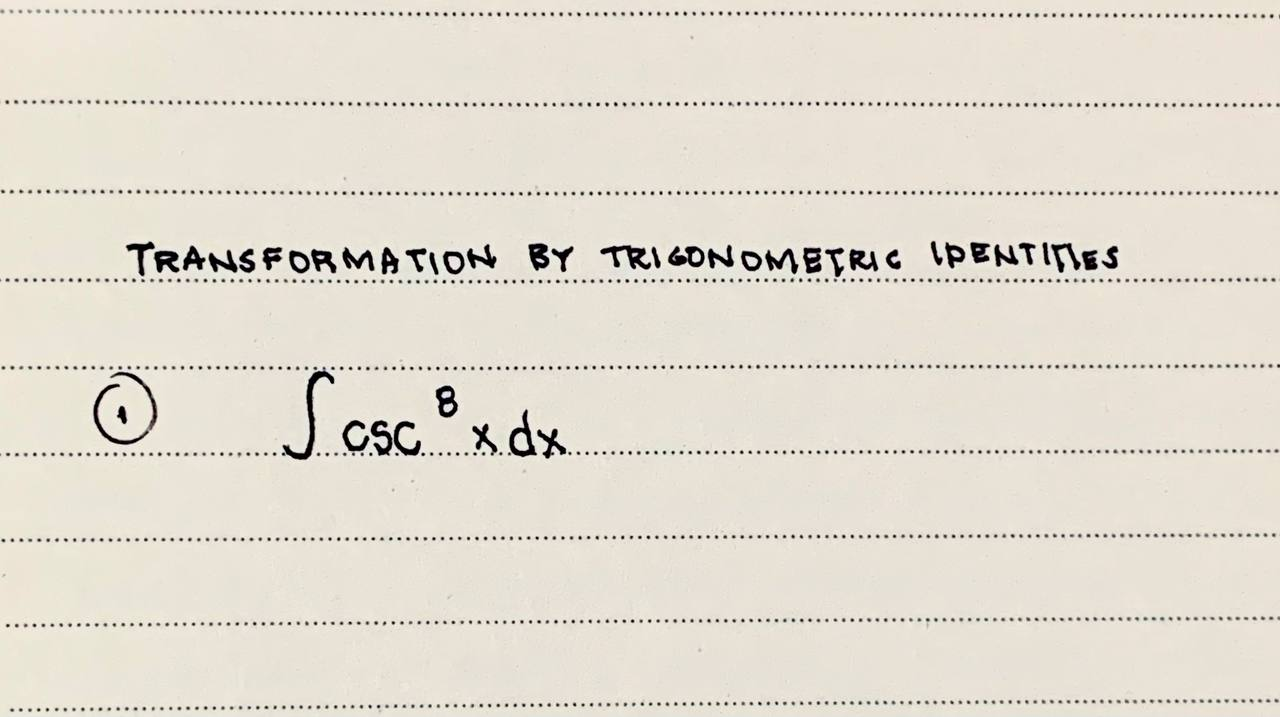 TRANSFORMATION BY TRIGONOMETRIC IDENTITIES
① ∫ csc⁸ x dx